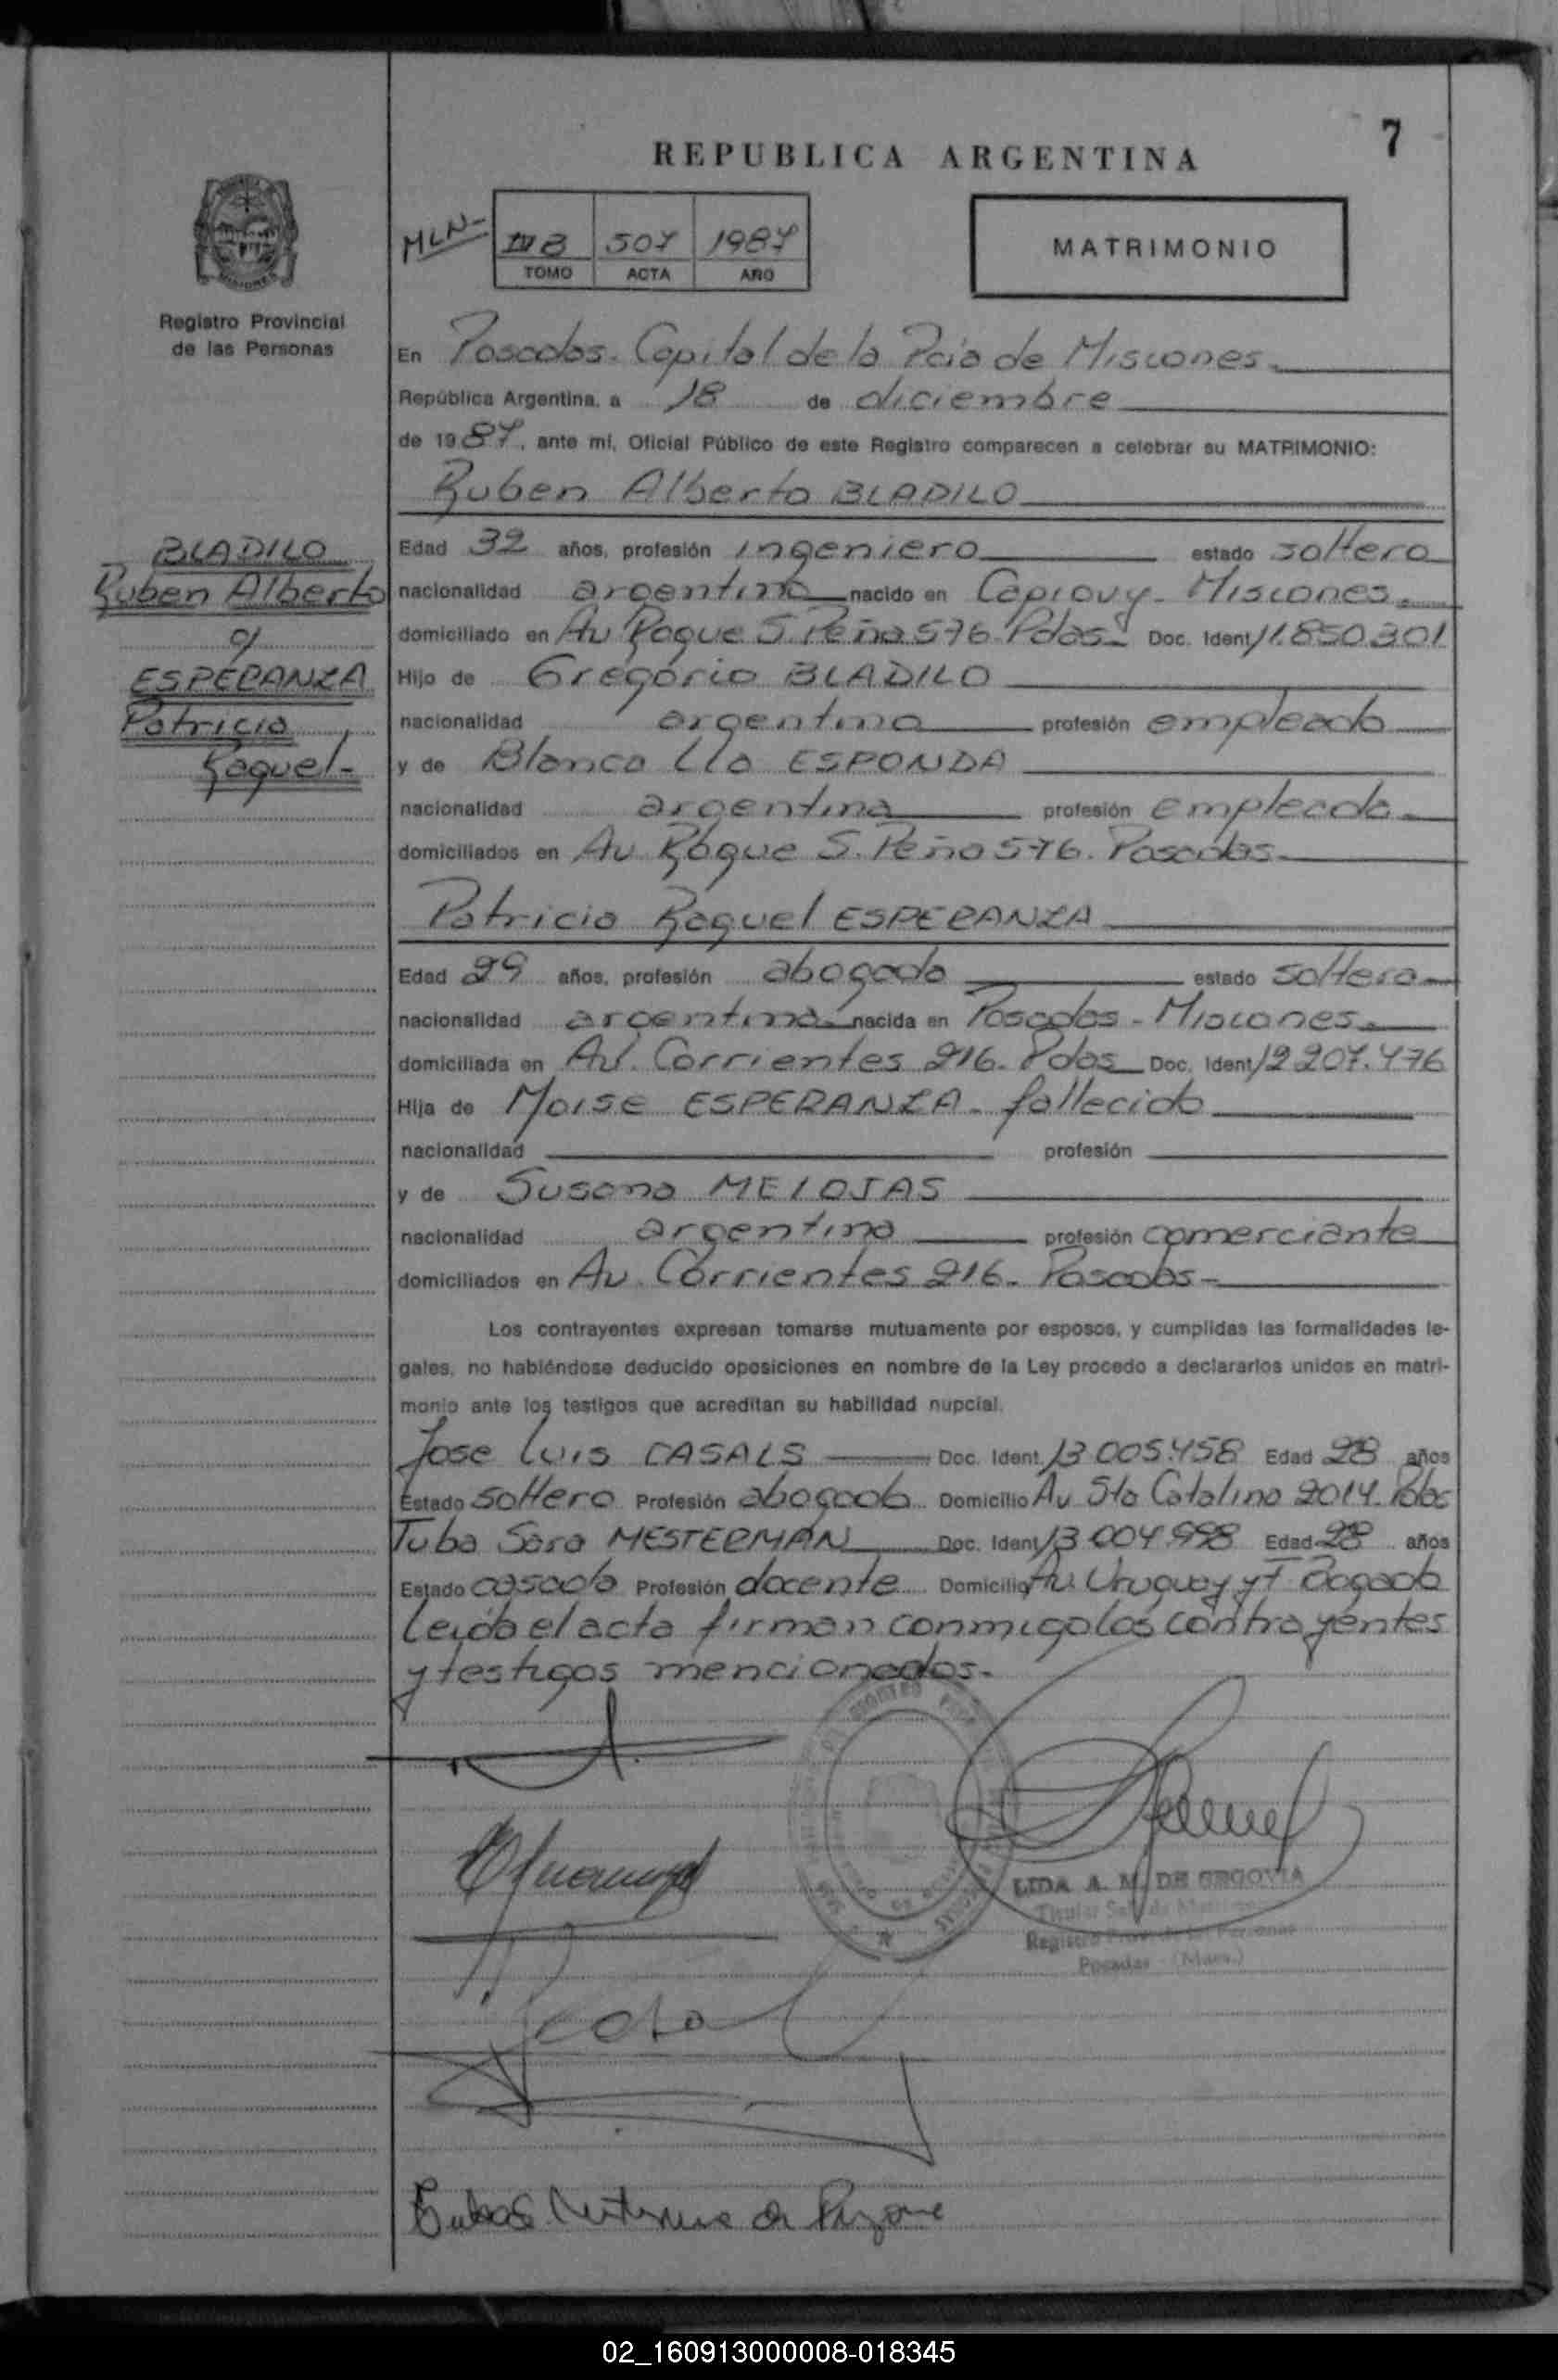 7
REPUBLICA ARGENTINA
MLN-
III B 507 1987
TOMO ACTA AÑO
MATRIMONIO
MISIONES
Registro Provincial
de las Personas
En Posadas. Capital de la Pcia de Misiones.
República Argentina, a 18 de diciembre
de 1987, ante mí, Oficial Público de este Registro comparecen a celebrar su MATRIMONIO:
Ruben Alberto BLADILO
BLADILO
Ruben Alberto
c/
ESPERANZA
Patricia
Raquel-
Edad 32 años, profesión ingeniero estado soltero
nacionalidad argentino nacido en Capiovy- Misiones.
domiciliado en Av Roque S. Peña 576 Pdas- Doc. Ident 11.850.301
Hijo de Gregorio BLADILO
nacionalidad argentina profesión empleado
y de Blanca Lla ESPONDA
nacionalidad argentina profesión empleada
domiciliados en Av Roque S. Peña 576. Posadas
Patricia Raquel ESPERANZA
Edad 29 años, profesión abogada estado soltera
nacionalidad argentina nacida en Posadas - Misiones.
domiciliada en Av. Corrientes 216. Pdas Doc. Ident 12 207.476
Hija de Moise ESPERANZA- fallecido
nacionalidad profesión
y de Susana MELOJAS
nacionalidad argentina profesión comerciante
domiciliados en Av. Corrientes 216. Posadas-
Los contrayentes expresan tomarse mutuamente por esposos, y cumplidas las formalidades le-
gales, no habiéndose deducido oposiciones en nombre de la Ley procedo a declararlos unidos en matri-
monio ante los testigos que acreditan su habilidad nupcial.
Jose Luis CASALS Doc. Ident. 13 005.458 Edad 28 años
Estado soltero Profesión abogado Domicilio Av Sta Catalina 2014. Pdas
Tuba Sara MESTERMAN Doc. Ident 13 004.998 Edad 28 años
Estado casada Profesión docente Domicilio Av. Uruguay y T
Leida el acta firman conmigo los contrayentes
y testigos mencionados-
LIDA A. M. DE SEGOVIA
Titular
Registro Prov. de las Personas
Posadas - (Mnes.)
02_160913000008-018345